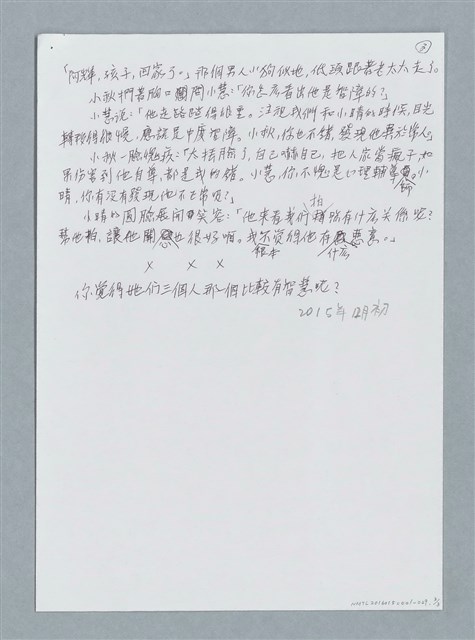 ③
「阿輝，孩子，回家了。」那個男人小狗似地，低頭跟著老太太走了。
小秋捫著胸口問小慧：「你怎麼看出他是智障的？」
小慧說：「他走路踏得很重。注視我們和小晴的時候，目光
轉移得很慢，應該是中度智障。小秋，你也不錯，發現他異於常人」
小秋一臉愧疚：「太精腦了，自己嚇自己，把人家當瘋子，如
果傷害到他自尊，都是我的錯。小慧，你不愧是心理輔導師。小
晴，你有沒有發現他不正常呢？」
小晴的圓臉展開笑容：「他來看我們拍照有什么关係呢？
幫他拍，讓他開也很好啊。我根本不觉得他有什么惡意。」
× × ×
你覺得她们三個人那個比較有智慧呢？
2015年12月初